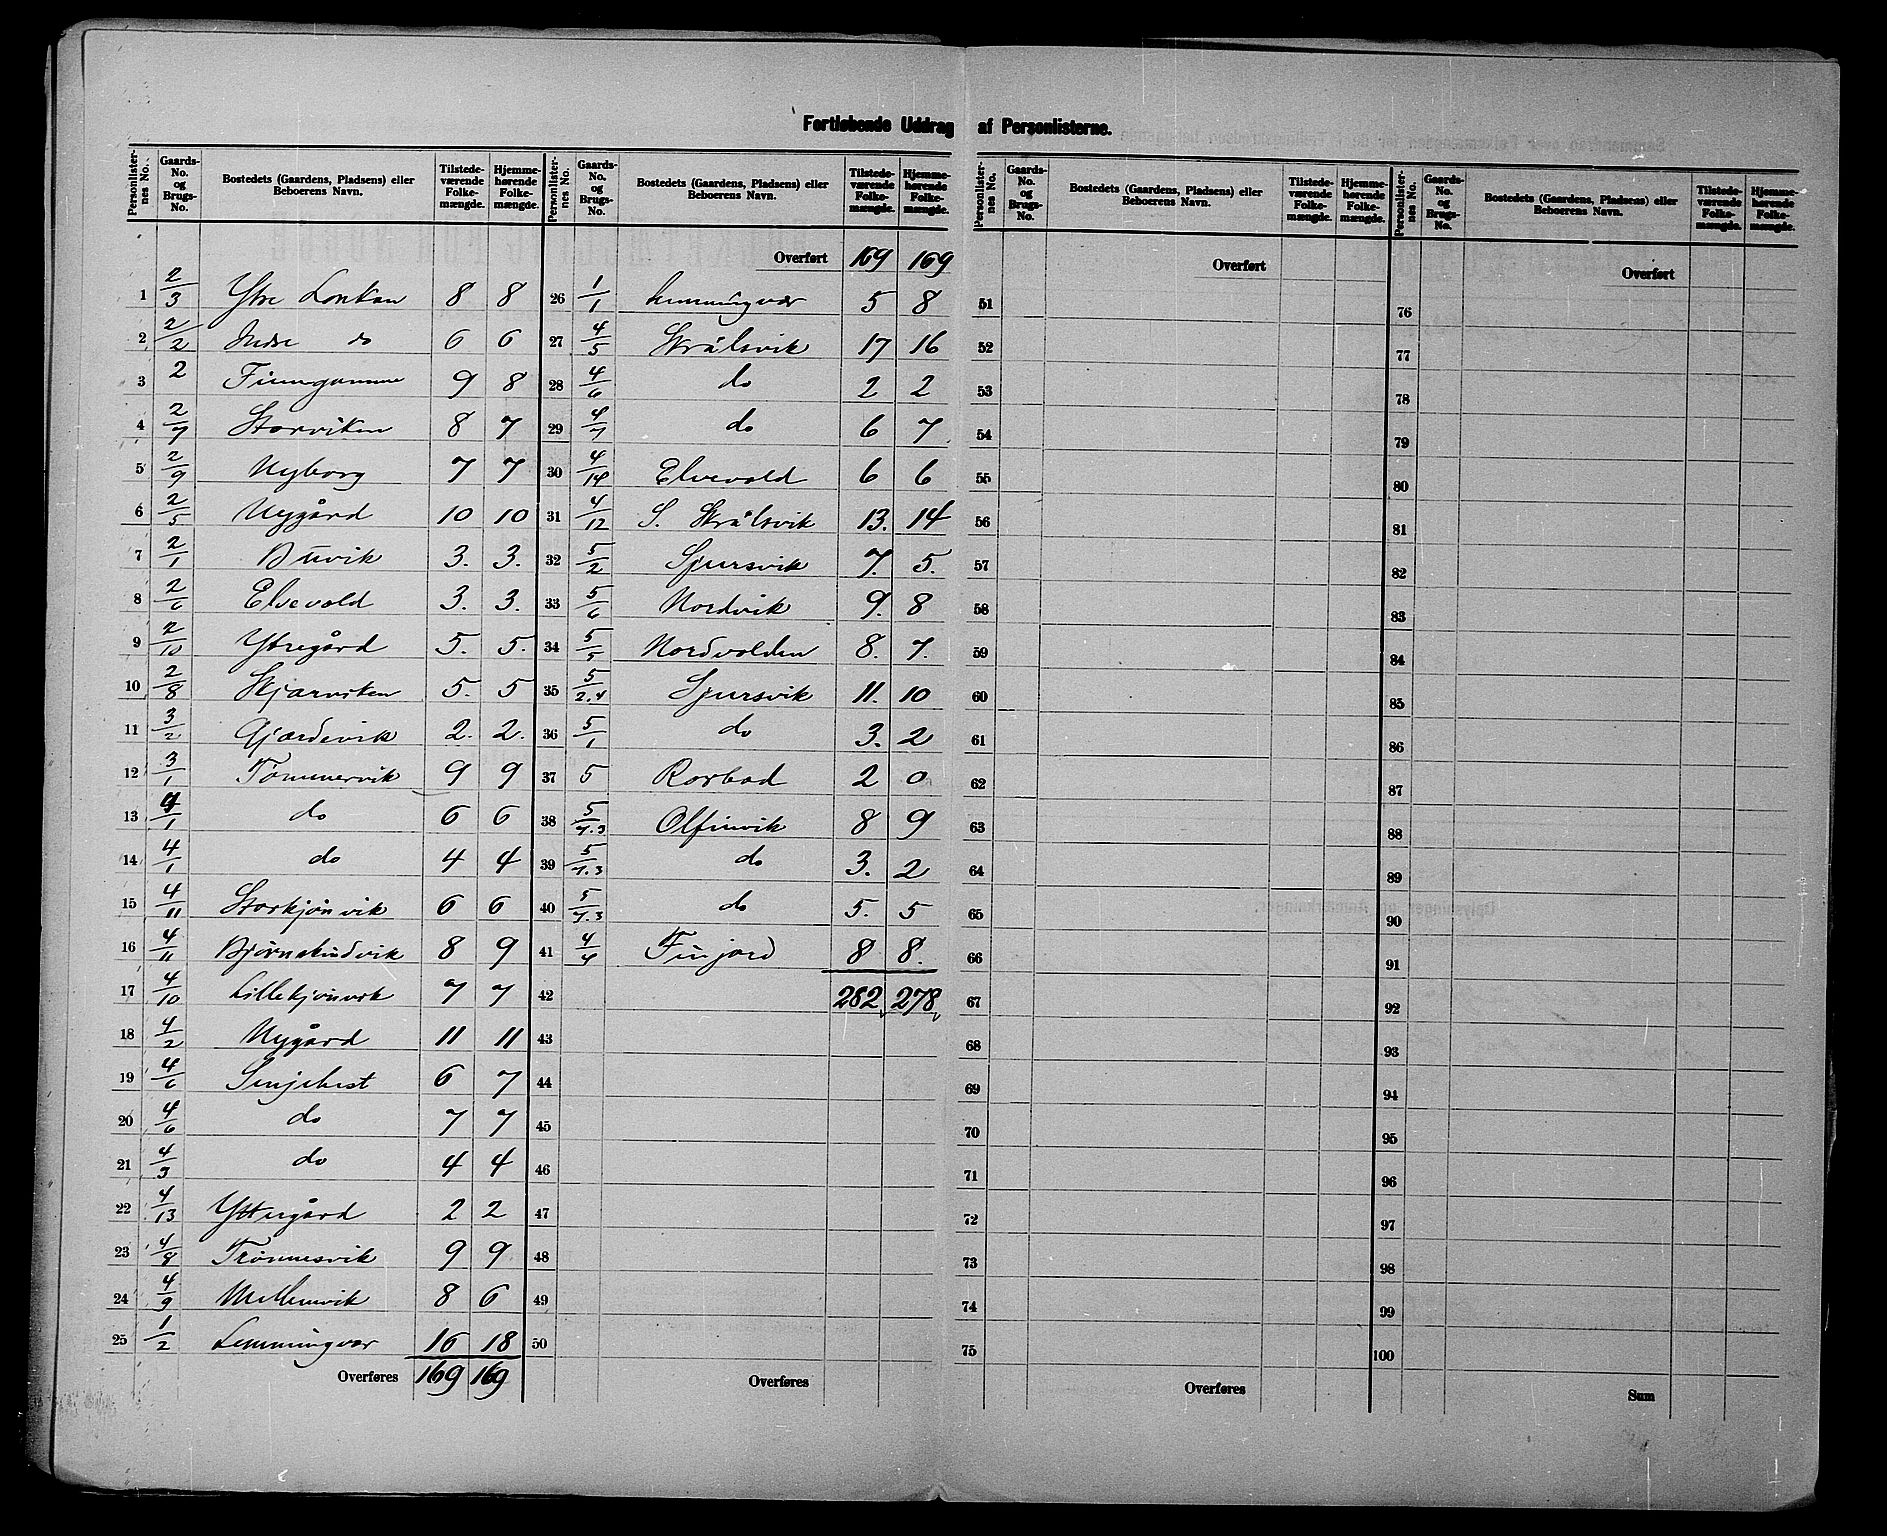 Fortløbende Uddrag af Personlisterne.
Personlister-nes No. Gaards-No. og Brugs-No. Bostedets (Gaardens, Pladsens) eller Beboerens Navn. Tilstede-værende Folke-mængde. Hjemme-hørende Folke-mængde.
1 2/3 Ytre Lonkan 8 8
2 2/2 Indre do 6 6
3 2 Finngamme 9 8
4 2/7 Storviken 8 7
5 2/9 Nyborg 7 7
6 2/5 Nygård 10 10
7 2/1 Buvik 3. 3.
8 2/6 Elvevold 3. 3.
9 2/10 Ytregård 5. 5.
10 2/8 Skjærviken 5. 5
11 3/2 Gjærdevik 2. 2.
12 3/1 Tømmervik 9 9
13 4/1 do 6 6
14 4/1 do 4 4
15 4/11 Storkjønvik 6 6
16 4/11 Bjørnskindvik 8 9
17 4/10 Lillekjønvik 7 7
18 4/2 Nygård 11 11
19 4/6 Senjehest 6 7
20 4/6 do 7 7
21 4/3 do 4 4
22 4/13 Yttergård 2 2
23 4/8 Trönnesvik 9 9
24 4/9 Mellemvik 8 6
25 1/2 Lemmingvær 16 18
Overføres 169 169
Personlister-nes No. Gaards-No. og Brugs-No. Bostedets (Gaardens, Pladsens) eller Beboerens Navn. Tilstede-værende Folke-mængde. Hjemme-hørende Folke-mængde.
Overført 169 169
26 1/1 Lemmingvær 5 8
27 4/5 Skrålsvik 17 16
28 4/6 do 2 2
29 4/7 do 6 7
30 4/14 Elvevold 6 6
31 4/12 S. Skrålsvik 13. 14
32 5/2 Sjursvik 7. 5.
33 5/6 Nordvik 9. 8
34 5/5 Nordvolden 8. 7.
35 5/2.4 Sjursvik 11. 10
36 5/1 do 3. 2
37 5 Rorbod 2 0
38 5/7.3 Olfinvik 8 9
39 5/7.3 do 3. 2
40 5/7.3 do 5. 5
41 4/4 Finjord 8 8.
42 282 278
43
44
45
46
47
48
49
50
Overføres
Personlister-nes No. Gaards-No. og Brugs-No. Bostedets (Gaardens, Pladsens) eller Beboerens Navn. Tilstede-værende Folke-mængde. Hjemme-hørende Folke-mængde.
Overført
51
52
53
54
55
56
57
58
59
60
61
62
63
64
65
66
67
68
69
70
71
72
73
74
75
Overføres
Personlister-nes No. Gaards-No. og Brugs-No. Bostedets (Gaardens, Pladsens) eller Beboerens Navn. Tilstede-værende Folke-mængde. Hjemme-hørende Folke-mængde.
Overført
76
77
78
79
80
81
82
83
84
85
86
87
88
89
90
91
92
93
94
95
96
97
98
99
100
Sum